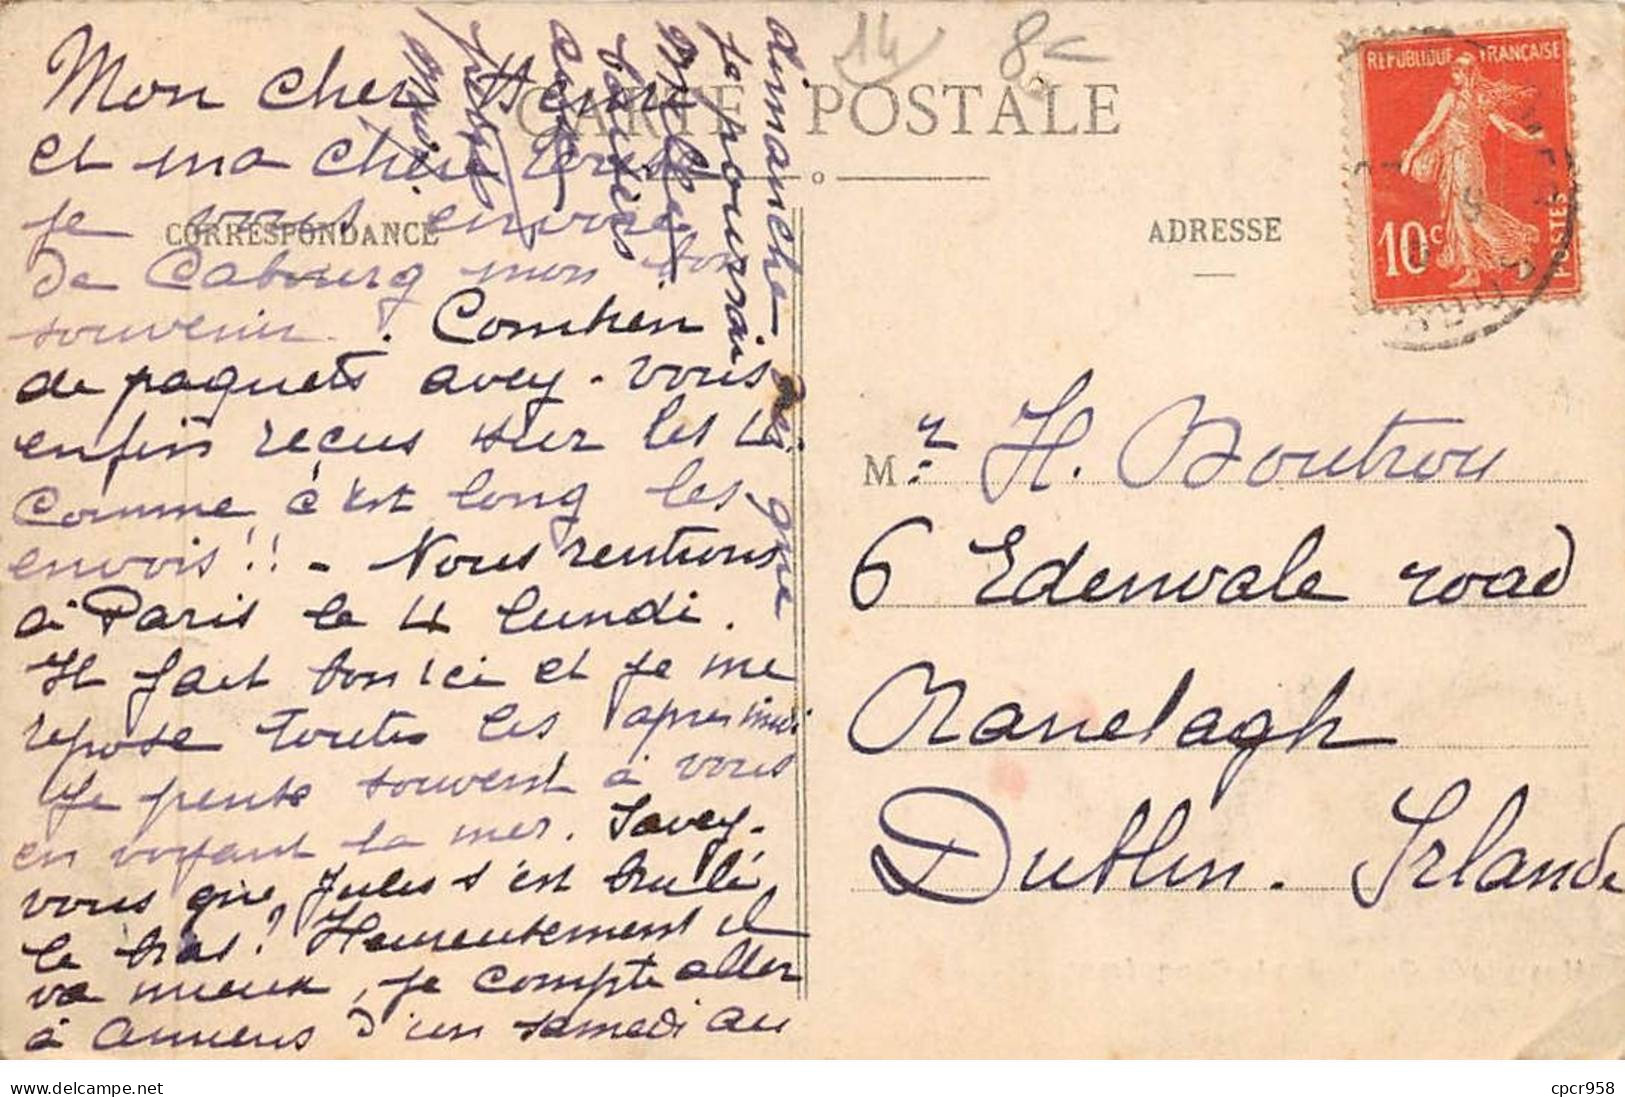 14 8
CARTE POSTALE
CORRESPONDANCE
ADRESSE
REPUBLIQUE FRANÇAISE
10c
POSTES
Mon cher Henri
et ma chère
je envoie
de Cabourg mon bon
souvenir. Combien
de paquets avez-vous
enfin reçus sur les 4
Comme c'est long les
envois!! - Nous rentrons
à Paris le 4 lundi.
Il fait bon ici et je me
repose toutes les après midi
Je pense souvent à vous
en voyant la mer. Savez-
vous que Jules s'est brulé
le bras? Heureusement il
va mieux, je compte aller
à Amiens d'un samedi au
dimanche dès que
je pourrai
Mille
baisers
Mr H. Boutrou
6 Edenvale road
Ranelagh
Dublin. Irlande
cpcr958